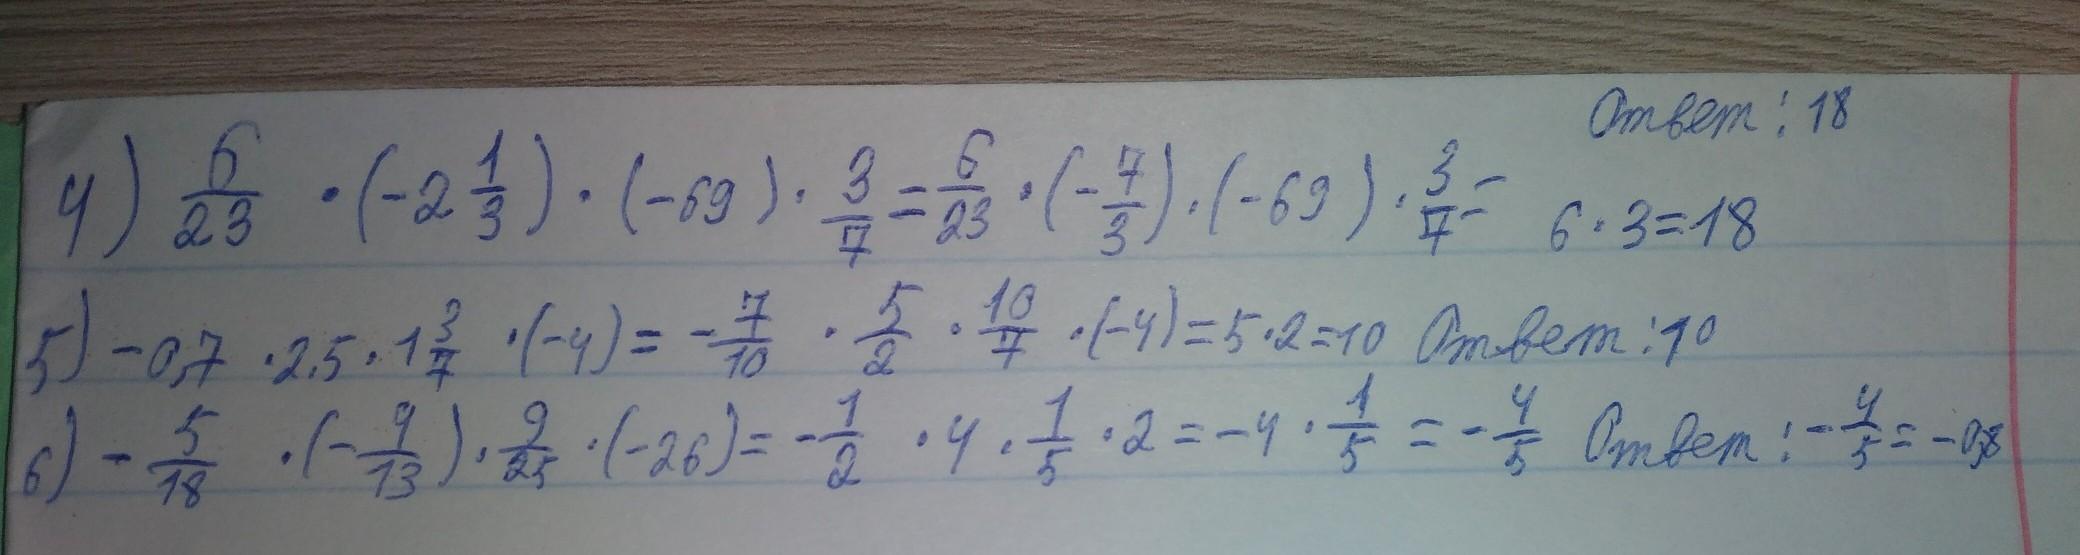 Ответ: 18
4) 6/23 · (-2 1/3) · (-69) · 3/7 = 6/23 · (-7/3) · (-69) · 3/7 = 6 · 3 = 18
5) -0,7 · 2,5 · 1 3/7 · (-4) = -7/10 · 5/2 · 10/7 · (-4) = 5 · 2 = 10 Ответ: 10
6) -5/18 · (-4/13) · 9/25 · (-26) = -1/2 · 4 · 1/5 · 2 = -4 · 1/5 = -4/5 Ответ: -4/5 = -0,8